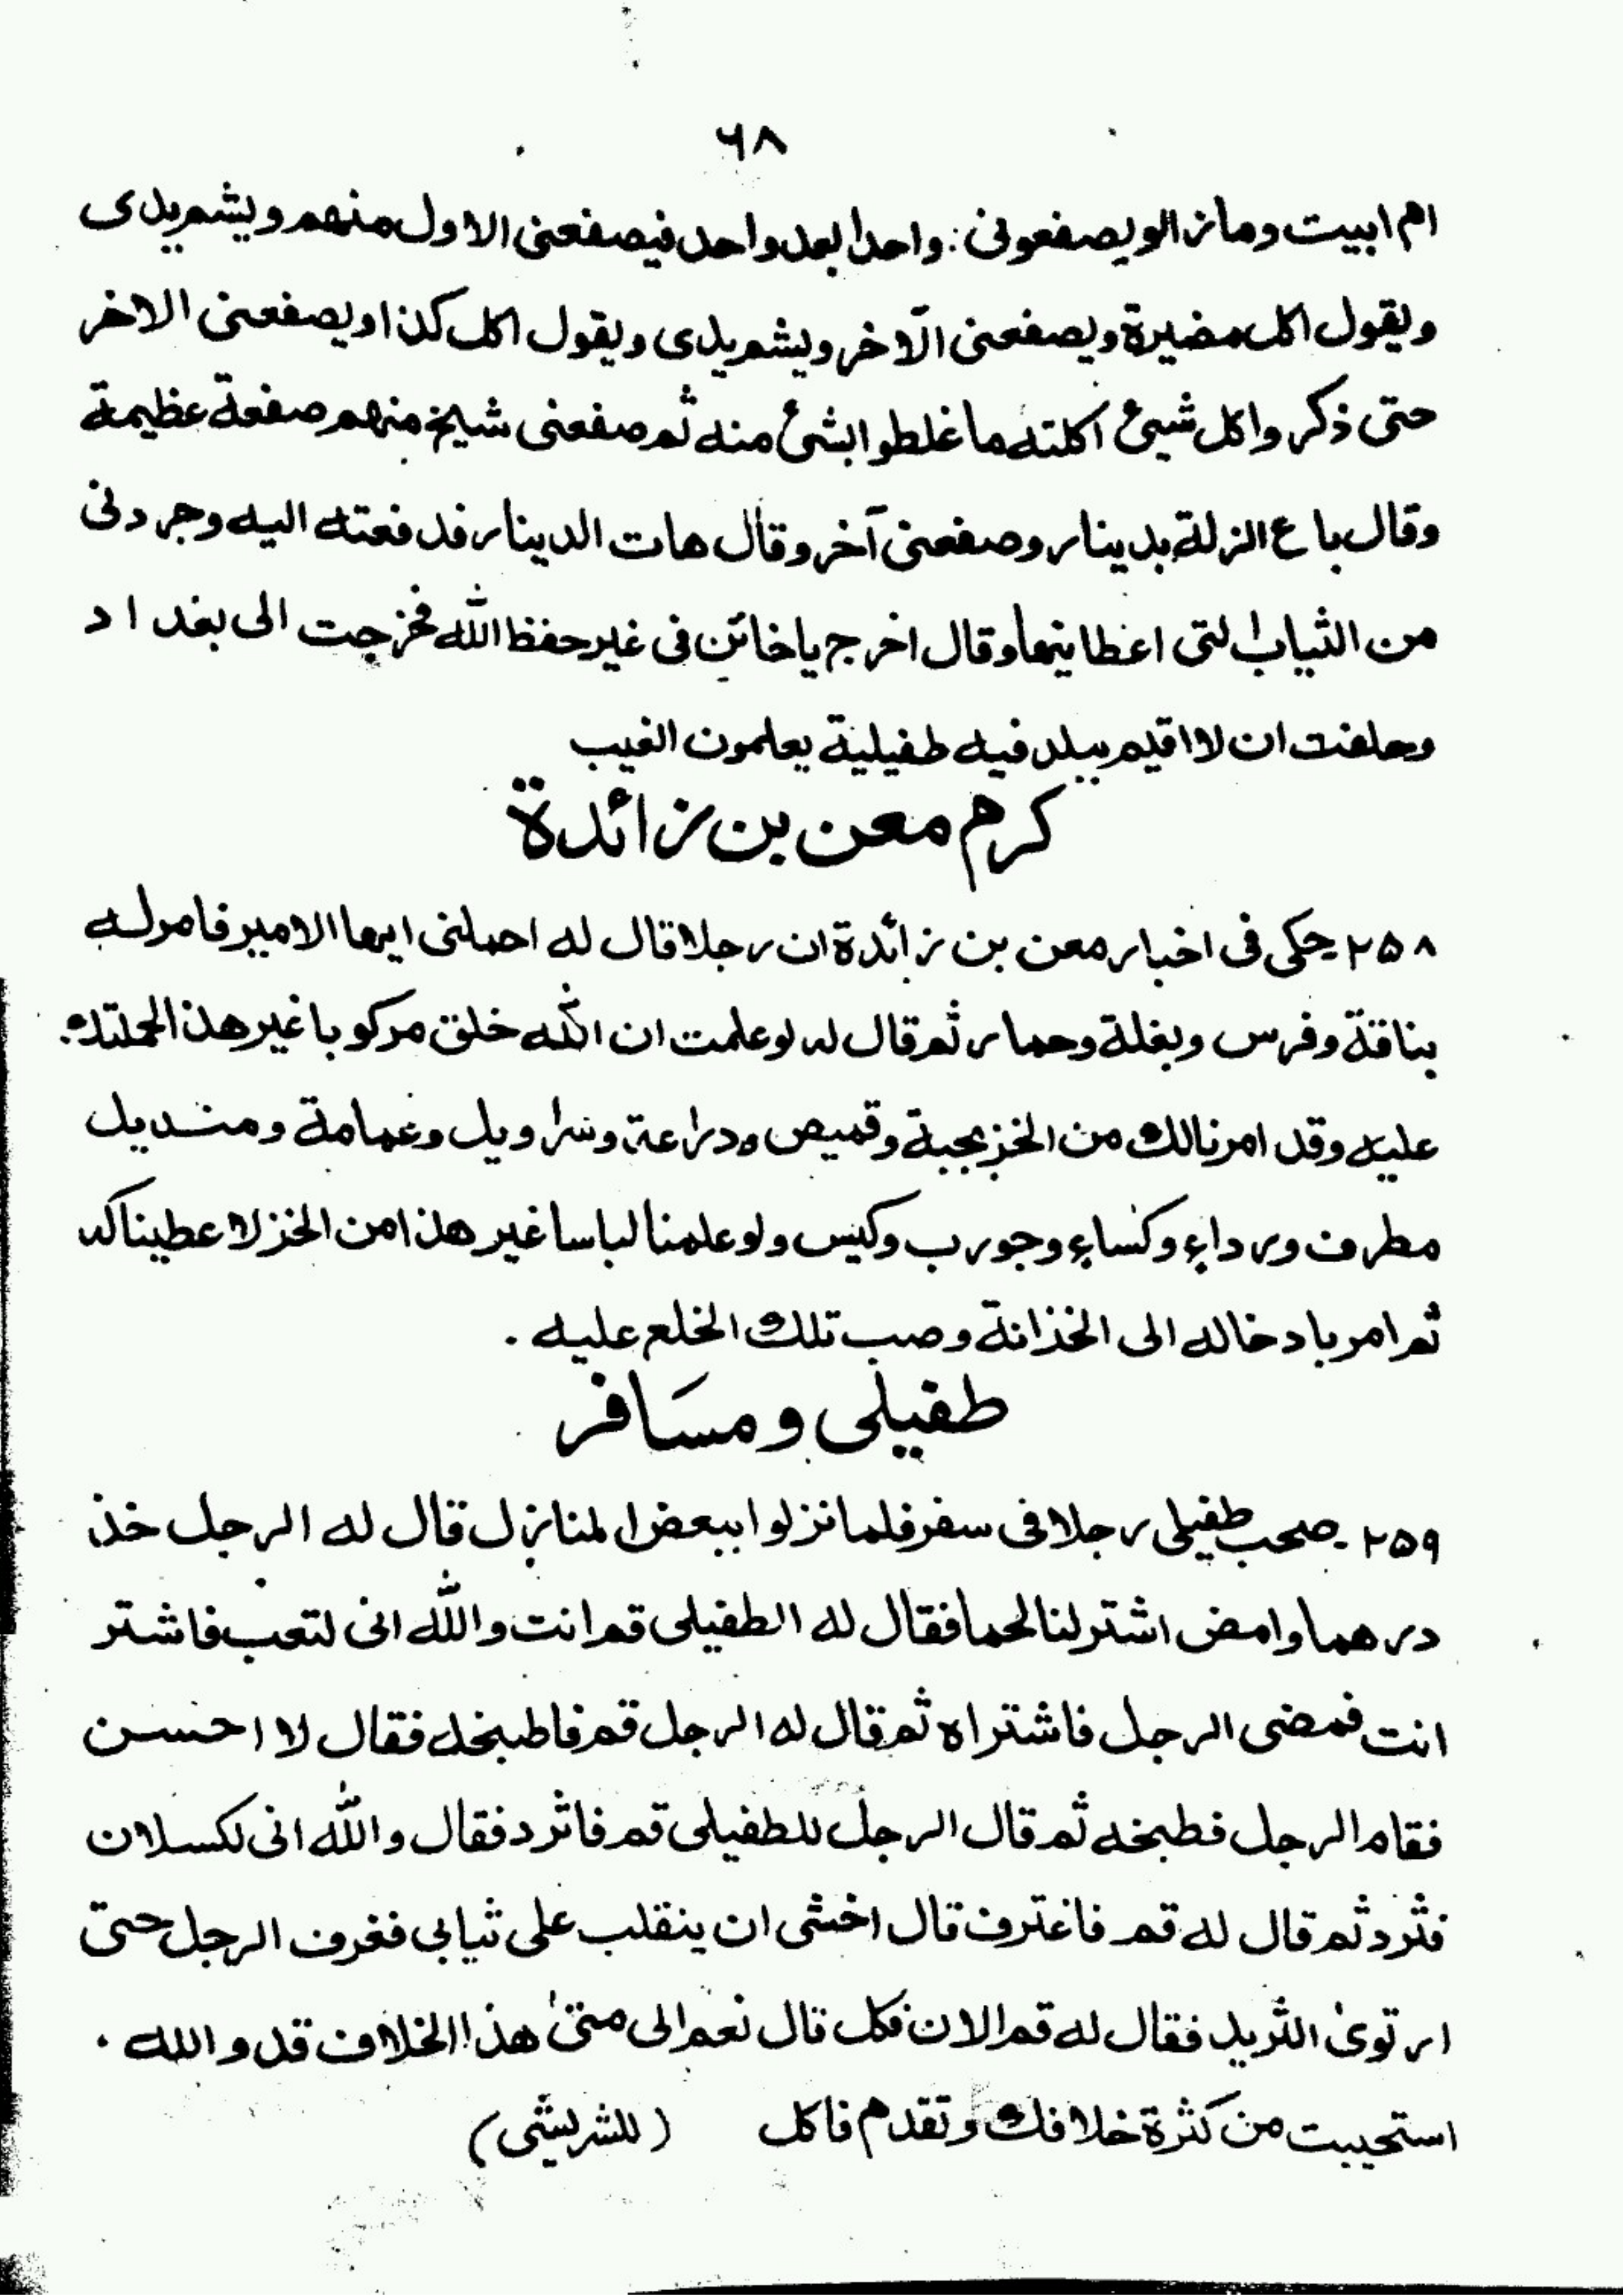 ۶۸
ام ابيت وما زالو يصفعونى: واحدا بعد واحد فيصفعنى الاول منهم ويشم يدى
ويقول اكل مضيرة ويصفعنى الآخر ويشم يدى ويقول اكل كذا ويصفعنى الاخر
حتى ذكر واكل شيئ اكلته ما غلطوا بشئ منه ثم صفعنى شيخ منهم صفعة عظيمة
وقال باع الزلة بدينار وصفعنى آخر وقال هات الدينار فدفعته اليه وجردنى
من الثياب التى اعطانيها وقال اخرج يا خائن فى غير حفظ الله فخرجت الى بغداد
وحلفت ان لا اقيم ببلد فيه طفيلية يعلمون الغيب
كرم معن بن زائدة
۲۵۸ حكى فى اخبار معن بن زائدة ان رجلا قال له احملنى ايها الامير فامر له
بناقة وفرس وبغلة وحمار ثم قال له لو علمت ان الله خلق مركوبا غير هذا لحملتك
عليه وقد امرنا لك من الخز بجبة وقميص ودراعة وسراويل وعمامة ومنديل
مطرف ورداء وكساء وجورب وكيس ولو علمنا لباسا غير هذا من الخز لاعطيناكه
ثم امر بادخاله الى الخذانة وصب تلك الخلع عليه .
طفيلى ومسَافر
۲۵۹ ـ صحب طفيلى رجلا فى سفر فلما نزلوا ببعض المنازل قال له الرجل خذ
درهما وامض اشتر لنا لحما فقال له الطفيلى قم انت والله انى لتعب فاشتر
انت فمضى الرجل فاشتراه ثم قال له الرجل قم فاطبخه فقال لا احسن
فقام الرجل فطبخه ثم قال الرجل للطفيلى قم فاثرد فقال والله انى لكسلان
فثرد ثم قال له قم فاغترف قال اخشى ان ينقلب على ثيابي فغرف الرجل حتى
ارتوى الثريد فقال له قم الان فكل قال نعم الى متى هذا الخلاف قد والله .
استحييت من كثرة خلافك وتقدم فاكل (للشريشى)